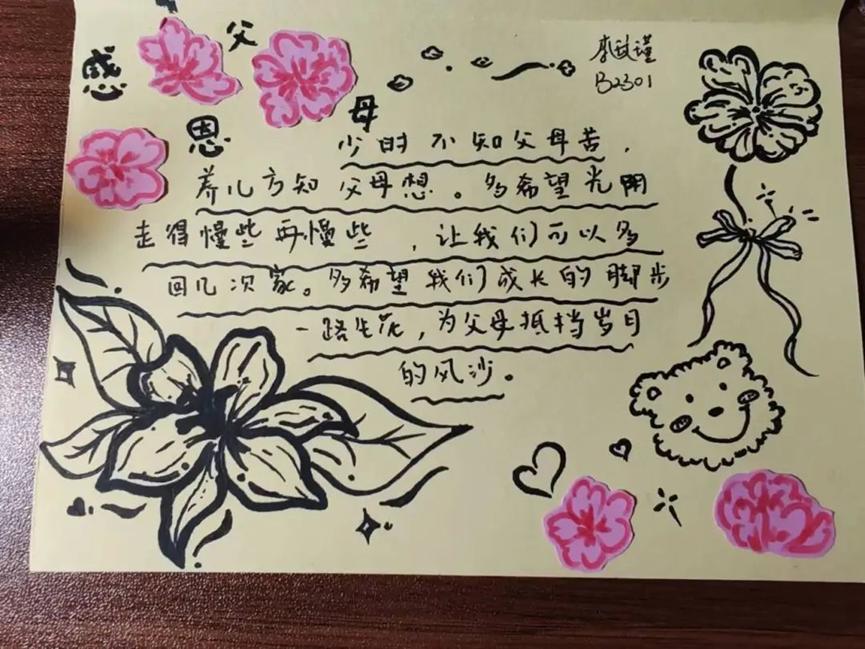 感恩父母
李 瑾
B2301
少时不知父母苦,
养儿方知父母想。多希望光阴
走得慢些再慢些,让我们可以多
回几次家。多希望我们成长的脚步
一路生花,为父母抵挡岁月
的风沙。